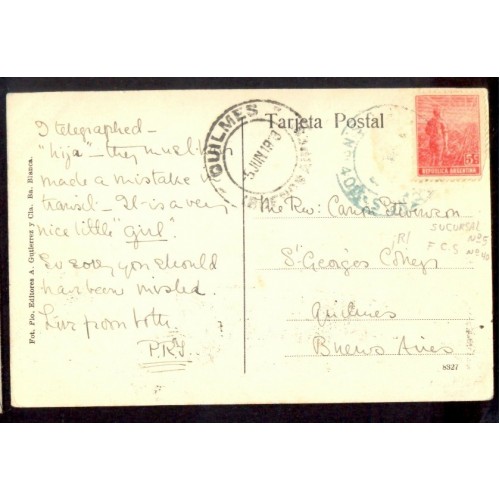 Fot. Pío. Editores A. Gutierrez y Cía. Ba. Blanca.
I telegraphed—
"hija"— they must
made a mistake in
transit— It is a very
nice little "girl".
So sorry you should
have been misled.
Love from both
P.R.J.
QUILMES
5 JUN 1913
BUENOS AIRES
Tarjeta Postal
5
REPUBLICA ARGENTINA
The Rev: Canon Stevenson
St Georges College
Quilmes
Buenos Aires
SUCURSAL
Nº 5
F.C.S
Nº 40
8327